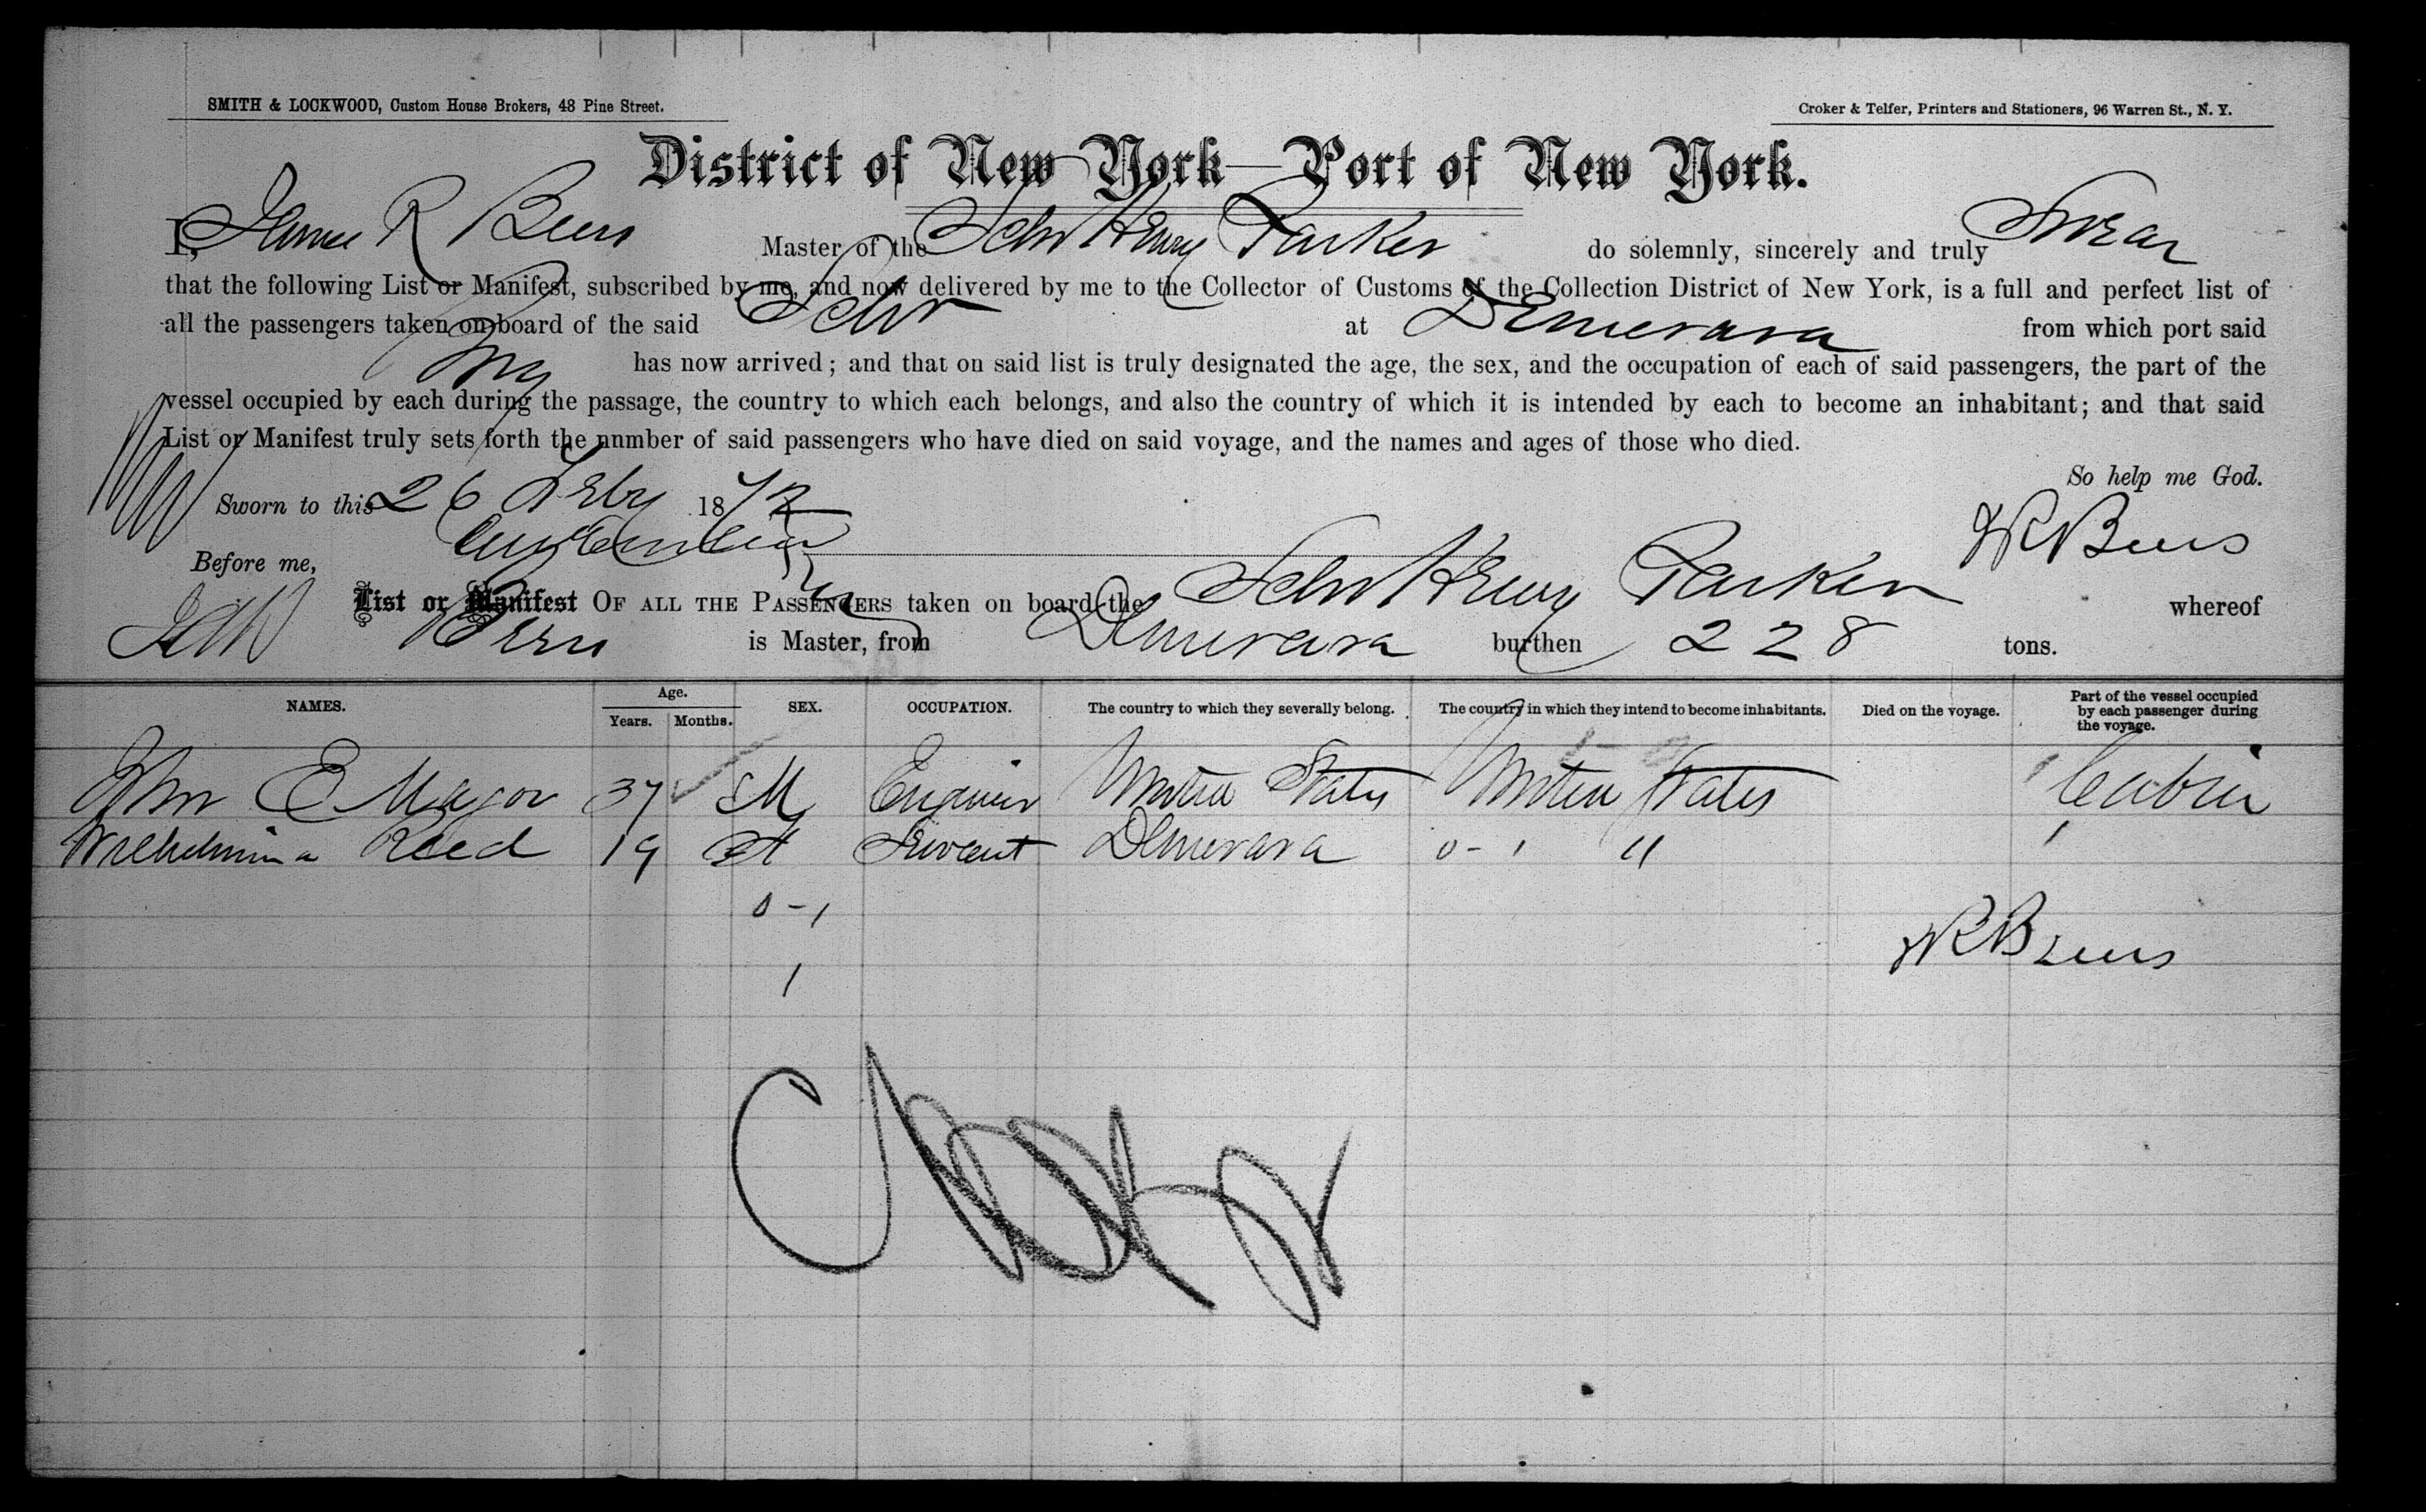 SMITH & LOCKWOOD, Custom House Brokers, 48 Pine Street.
Croker & Telfer, Printers and Stationers, 96 Warren St., N. Y.
District of New York—Port of New York.
I, James R Beers Master of the Schr Henry Parker do solemnly, sincerely and truly Swear
that the following List or Manifest, subscribed by me, and now delivered by me to the Collector of Customs of the Collection District of New York, is a full and perfect list of
all the passengers taken on board of the said Schr at Demerara from which port said
has now arrived; and that on said list is truly designated the age, the sex, and the occupation of each of said passengers, the part of the
vessel occupied by each during the passage, the country to which each belongs, and also the country of which it is intended by each to become an inhabitant; and that said
List or Manifest truly sets forth the nnmber of said passengers who have died on said voyage, and the names and ages of those who died.
So help me God.
Sworn to this 26 Feby 187
JRBeers
Before me,
List or Manifest OF ALL THE PASSENGERS taken on board the Schr Henry Parker whereof
Beers is Master, from Demerara burthen 228 tons.
NAMES. Age. Years. Months. SEX. OCCUPATION. The country to which they severally belong. The country in which they intend to become inhabitants. Died on the voyage. Part of the vessel occupied by each passenger during the voyage.
John E Mayor 37 M Engineer United States United States Cabin
Wilhelmina Reed 19 F Servant Demerara 0-1 "
0-1
JRBeers
1